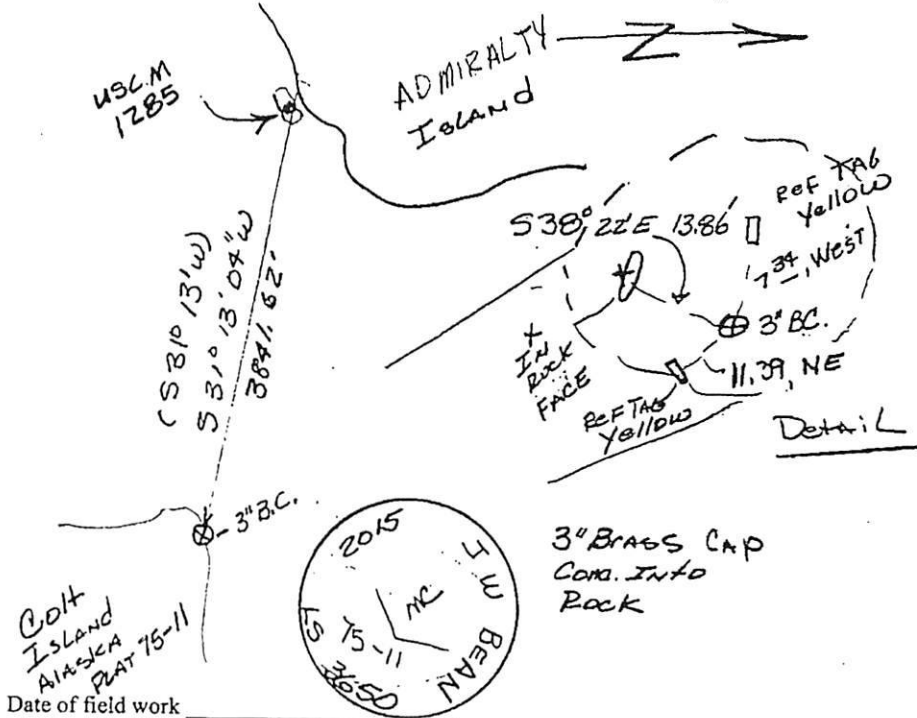 USC.M
1285
ADMIRALTY
ISLAND
N
(S31° 13' W)
S 31° 13' 04" W
3841.62'
S38° 22'E 13.86'
REF TAG
Yellow
7.34, WEST
3" BC.
11.39, NE
+
IN
ROCK
FACE
REF TAG
Yellow
Detail
3" B.C.
Colt
ISLAND
ALASKA
PLAT 75-11
2015
J W BEAN
MC
75-11
LS
3650
3" BRASS CAP
INTO
ROCK
Date of field work